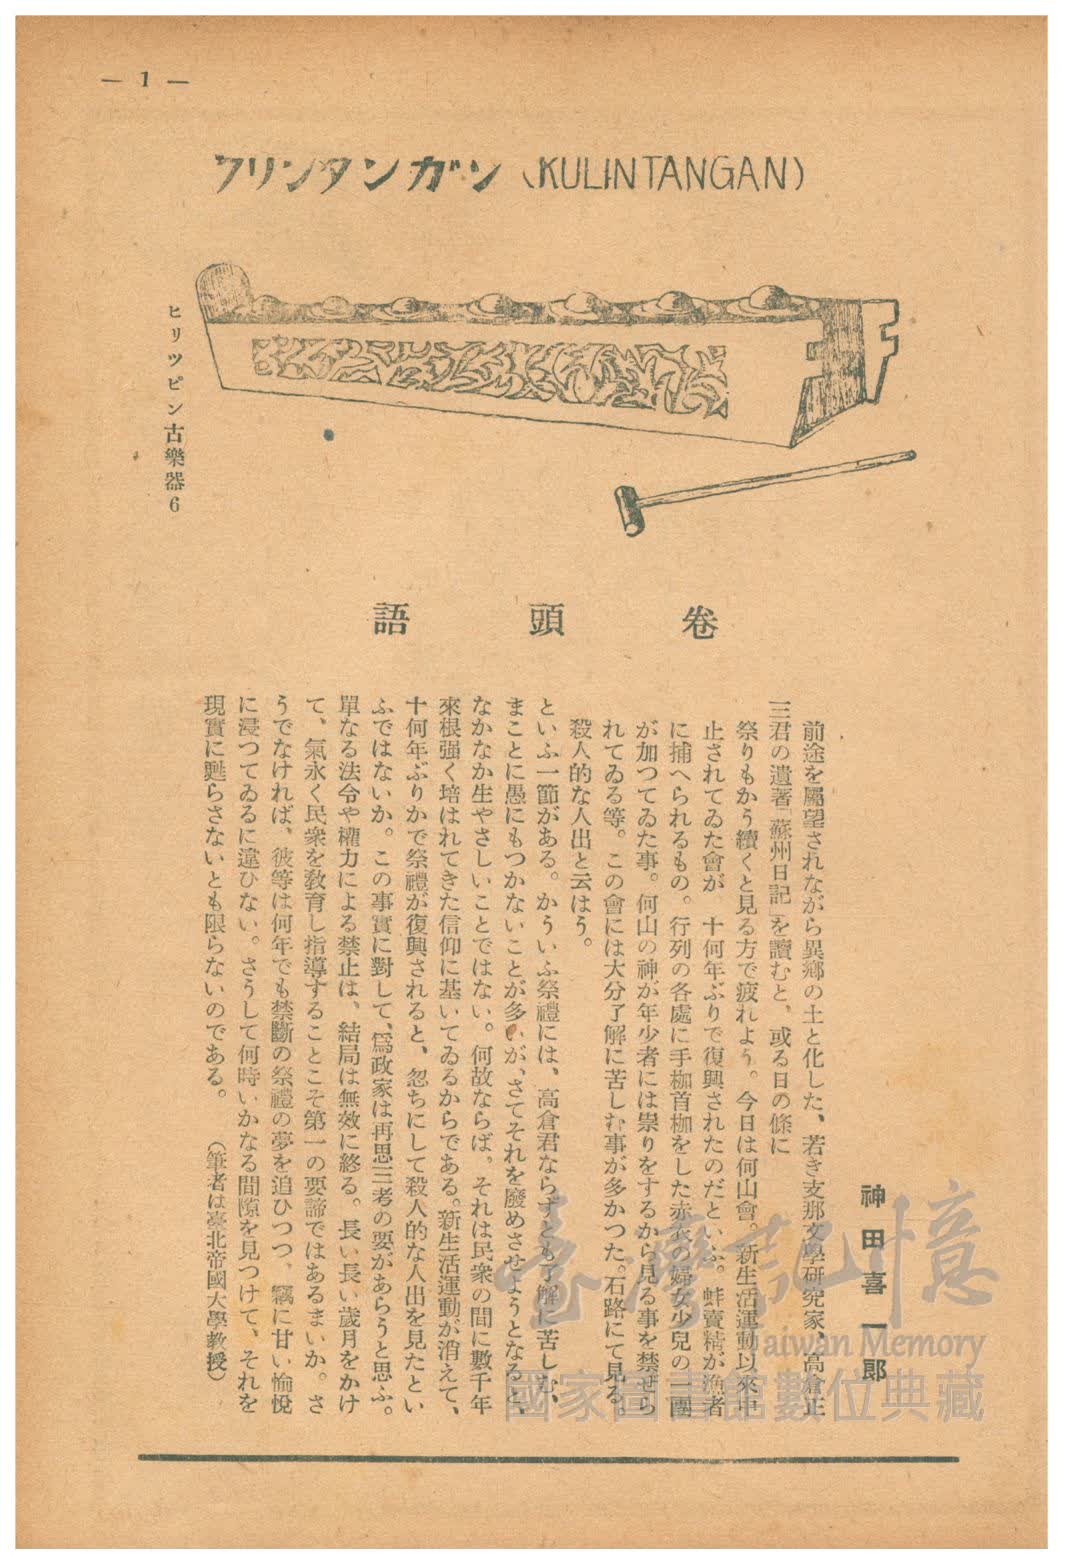 — 1 —
クリンタンガン（KULINTANGAN）
ヒリツピン古樂器6
卷頭語
神田喜一郎
前途を屬望されながら異鄕の土と化した、若き支那文學研究家、高倉正
三君の遺著「蘇州日記」を讀むと、或る日の條に
祭りもかう續くと見る方で疲れよう。今日は何山會。新生活運動以來中
止されてゐた會が、十何年ぶりで復興されたのだといふ。蚌賣精が漁者
に捕へられるもの。行列の各處に手枷首枷をした赤衣の婦女少兒の一團
が加つてゐた事。何山の神が年少者には祟りをするから見る事を禁ぜら
れてゐる等。この會には大分了解に苦しむ事が多かつた。石路にて見る。
殺人的な人出と云はう。
といふ一節がある。かういふ祭禮には、高倉君ならずとも了解に苦しむ、
まことに愚にもつかないことが多いが、さてそれを廢めさせようとなると、
なかなか生やさしいことではない。何故ならば、それは民衆の間に數千年
來根强く培はれてきた信仰に基いてゐるからである。新生活運動が消えて、
十何年ぶりかで祭禮が復興されると、忽ちにして殺人的な人出を見たとい
ふではないか。この事實に對して、爲政家は再思三考の要があらうと思ふ。
單なる法令や權力による禁止は、結局は無效に終る。長い長い歲月をかけ
て、氣永く民衆を敎育し指導することこそ第一の要諦ではあるまいか。さ
うでなければ、彼等は何年でも禁斷の祭禮の夢を追ひつつ、竊に甘い愉悅
に浸つてゐるに違ひない。さうして何時いかなる間隙を見つけて、それを
現實に甦らさないとも限らないのである。（筆者は臺北帝國大學敎授）
臺灣記憶
Taiwan Memory
國家圖書館數位典藏